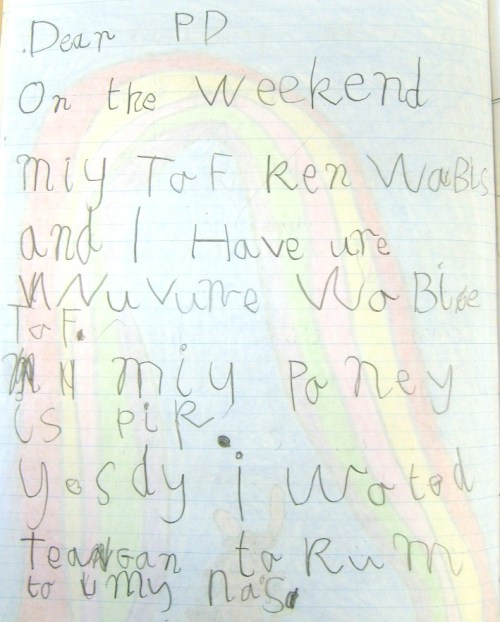 Dear PD
On the weekend
miy ToF Ken WoBls
and I Have ure
NuVure WoBloe
ToF.
miy Poney
is pik.
Yesdy i Woted
to Kum
to my nas.